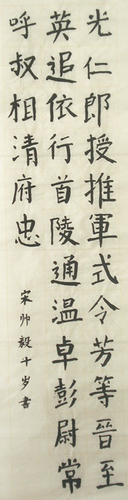 光仁郎授推軍式令芳等晉至
英追依行首陵通温卓彭尉常
呼叔相清府忠
宋帅毅千岁書